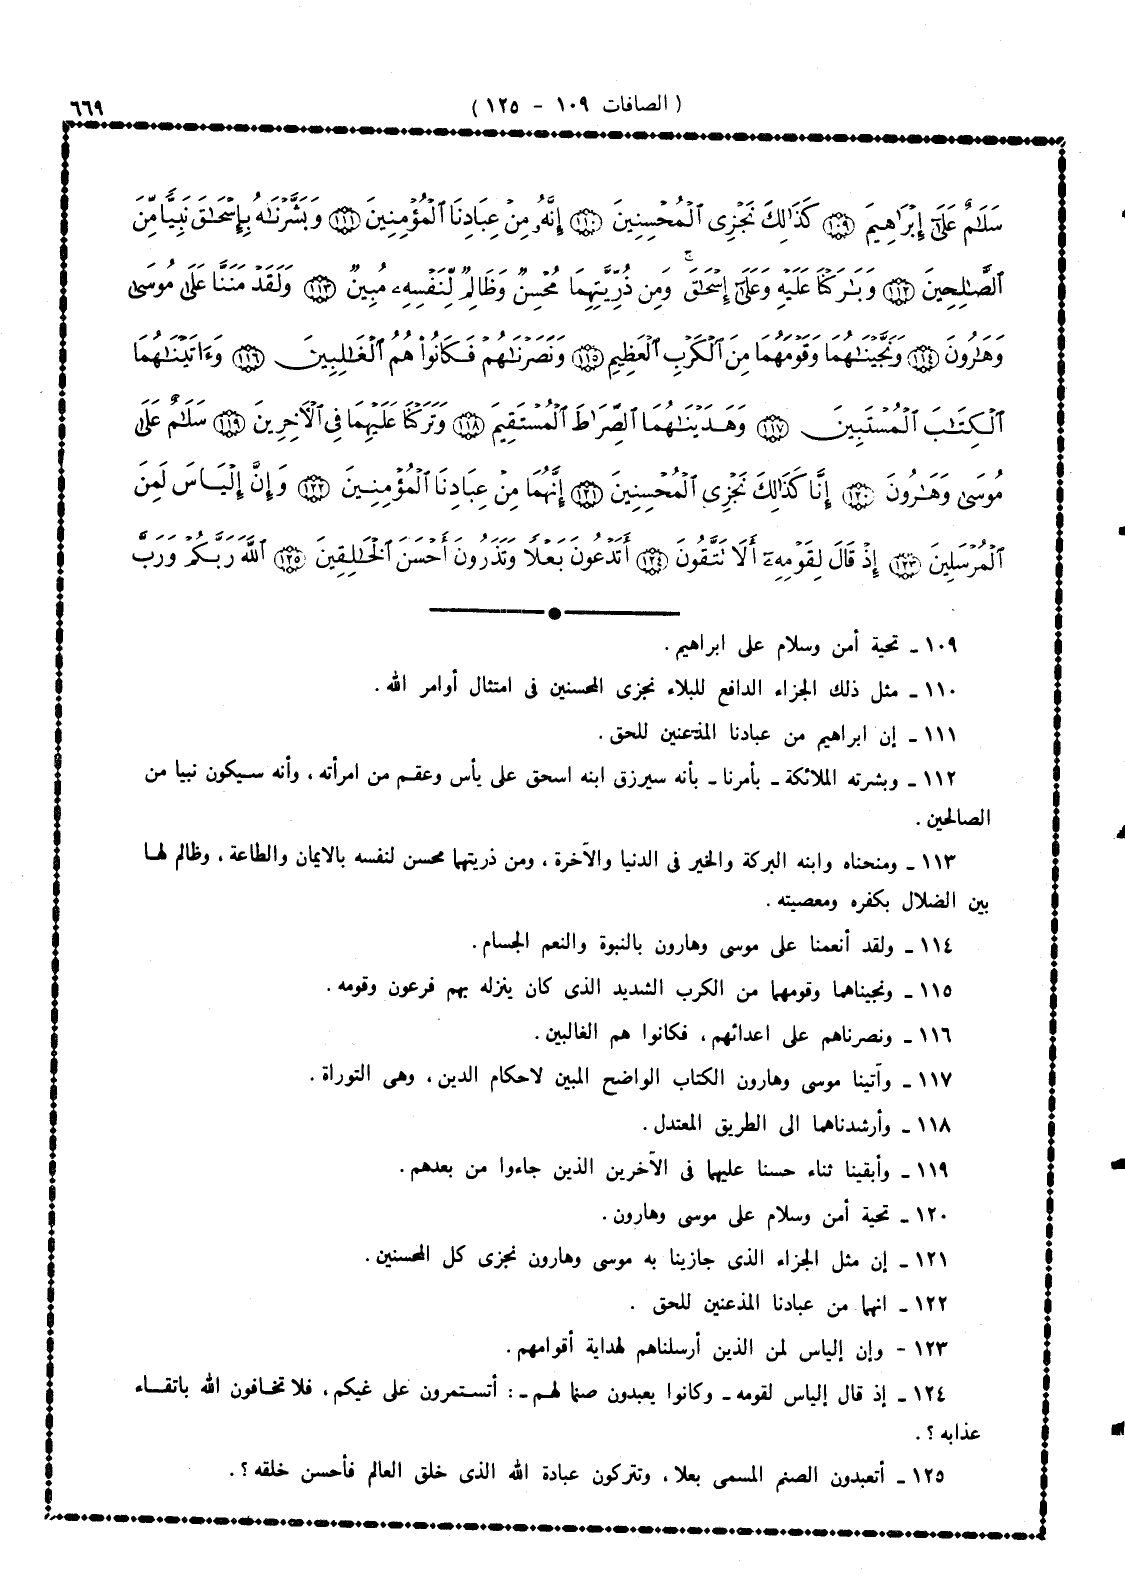 ( الصافات ١٠٩ - ١٢٥ )
٦٦٩
سَلَامٌ عَلَىٰٓ إِبْرَاهِيمَ ١٠٩ كَذَالِكَ نَجْزِى ٱلْمُحْسِنِينَ ١١٠ إِنَّهُۥ مِنْ عِبَادِنَا ٱلْمُؤْمِنِينَ ١١١ وَبَشَّرْنَاهُ بِإِسْحَاقَ نَبِيًّا مِّنَ
ٱلصَّالِحِينَ ١١٢ وَبَارَكْنَا عَلَيْهِ وَعَلَىٰٓ إِسْحَاقَ ۚ وَمِن ذُرِّيَّتِهِمَا مُحْسِنٌ وَظَالِمٌ لِّنَفْسِهِۦ مُبِينٌ ١١٣ وَلَقَدْ مَنَنَّا عَلَىٰ مُوسَىٰ
وَهَارُونَ ١١٤ وَنَجَّيْنَاهُمَا وَقَوْمَهُمَا مِنَ ٱلْكَرْبِ ٱلْعَظِيمِ ١١٥ وَنَصَرْنَاهُمْ فَكَانُوا۟ هُمُ ٱلْغَالِبِينَ ١١٦ وَءَاتَيْنَاهُمَا
ٱلْكِتَابَ ٱلْمُسْتَبِينَ ١١٧ وَهَدَيْنَاهُمَا ٱلصِّرَاطَ ٱلْمُسْتَقِيمَ ١١٨ وَتَرَكْنَا عَلَيْهِمَا فِى ٱلْآخِرِينَ ١١٩ سَلَامٌ عَلَىٰ
مُوسَىٰ وَهَارُونَ ١٢٠ إِنَّا كَذَالِكَ نَجْزِى ٱلْمُحْسِنِينَ ١٢١ إِنَّهُمَا مِنْ عِبَادِنَا ٱلْمُؤْمِنِينَ ١٢٢ وَإِنَّ إِلْيَاسَ لَمِنَ
ٱلْمُرْسَلِينَ ١٢٣ إِذْ قَالَ لِقَوْمِهِۦٓ أَلَا تَتَّقُونَ ١٢٤ أَتَدْعُونَ بَعْلًا وَتَذَرُونَ أَحْسَنَ ٱلْخَالِقِينَ ١٢٥ ٱللَّهَ رَبَّكُمْ وَرَبَّ
١٠٩ - تحية أمن وسلام على ابراهيم .
١١٠ - مثل ذلك الجزاء الدافع للبلاء نجزى المحسنين فى امتثال أوامر الله .
١١١ - إن ابراهيم من عبادنا المذعنين للحق .
١١٢ - وبشرته الملائكة - بأمرنا - بأنه سيرزق ابنه اسحق على يأس وعقم من امرأته ، وأنه سيكون نبيا من
الصالحين .
١١٣ - ومنحناه وابنه البركة والخير فى الدنيا والآخرة ، ومن ذريتهما محسن لنفسه بالايمان والطاعة ، وظالم لها
بين الضلال بكفره ومعصيته .
١١٤ - ولقد أنعمنا على موسى وهارون بالنبوة والنعم الجسام .
١١٥ - ونجيناهما وقومهما من الكرب الشديد الذى كان ينزله بهم فرعون وقومه .
١١٦ - ونصرناهم على اعدائهم ، فكانوا هم الغالبين .
١١٧ - وآتينا موسى وهارون الكتاب الواضح المبين لاحكام الدين ، وهى التوراة .
١١٨ - وأرشدناهما الى الطريق المعتدل .
١١٩ - وأبقينا ثناء حسنا عليهما فى الآخرين الذين جاءوا من بعدهم .
١٢٠ - تحية أمن وسلام على موسى وهارون .
١٢١ - إن مثل الجزاء الذى جازينا به موسى وهارون نجزى كل المحسنين .
١٢٢ - انهما من عبادنا المذعنين للحق .
١٢٣ - وإن إلياس لمن الذين أرسلناهم لهداية أقوامهم .
١٢٤ - إذ قال إلياس لقومه - وكانوا يعبدون صنما لهم - : أتستمرون على غيكم ، فلا تخافون الله باتقاء
عذابه ؟ .
١٢٥ - أتعبدون الصنم المسمى بعلا ، وتتركون عبادة الله الذى خلق العالم فأحسن خلقه ؟ .